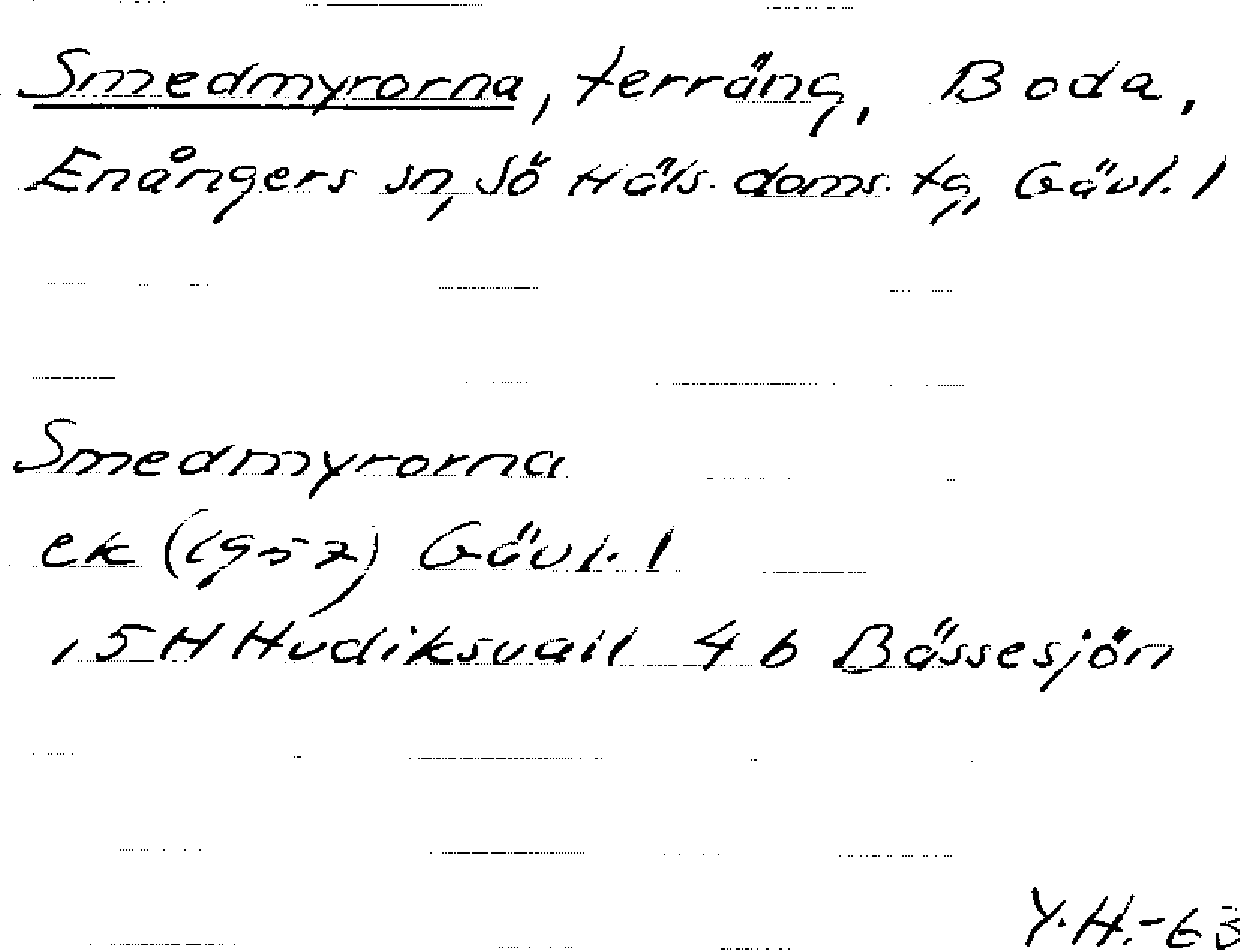 Smedmyrorna, terräng, Boda,
Enångers sn, Sö Häls. doms. tg, Gävl. l
Smedmyrorna
ek (1957) Gävl. l
15 H Hudiksvall 4 b Bässesjön
Y.H.-63